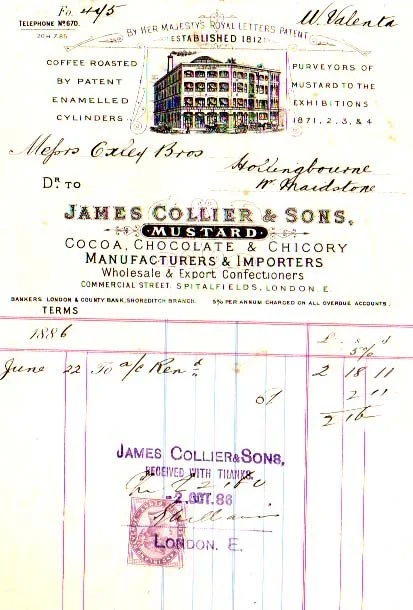 Fo 445
W. Valenta
TELEPHONE No 670.
20M 7.85
BY HER MAJESTY'S ROYAL LETTERS PATENT
ESTABLISHED 1812
COFFEE ROASTED
BY PATENT
ENAMELLED
CYLINDERS.
PURVEYORS OF
MUSTARD TO THE
EXHIBITIONS
1871, 2, 3, & 4
Messrs Oxley Bros
Hollingbourne
Nr Maidstone
DR TO
JAMES COLLIER & SONS,
MUSTARD
COCOA, CHOCOLATE & CHICORY
MANUFACTURERS & IMPORTERS
Wholesale & Export Confectioners
COMMERCIAL STREET. SPITALFIELDS, LONDON. E
BANKERS LONDON & COUNTY BANK, SHOREDITCH BRANCH. 5% PER ANNUM CHARGED ON ALL OVERDUE ACCOUNTS.
TERMS
1886
£ s d
5%
June 22 To a/c Rend 2 18 11
2 11
2 16
JAMES COLLIER & SONS,
RECEIVED WITH THANKS.
£2
-2.OCT.86
LONDON. E.